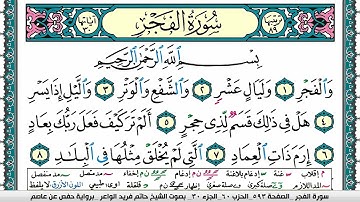 سُورَةُ الْفَجْرِ
بِسْمِ اللَّهِ الرَّحْمَٰنِ الرَّحِيمِ
وَالْفَجْرِ ١ وَلَيَالٍ عَشْرٍ ٢ وَالشَّفْعِ وَالْوَتْرِ ٣ وَاللَّيْلِ إِذَا يَسْرِ
٤ هَلْ فِي ذَٰلِكَ قَسَمٌ لِّذِي حِجْرٍ ٥ أَلَمْ تَرَ كَيْفَ فَعَلَ رَبُّكَ بِعَادٍ
٦ إِرَمَ ذَاتِ الْعِمَادِ ٧ الَّتِي لَمْ يُخْلَقْ مِثْلُهَا فِي الْبِلَادِ ٨
سورة الفجر الصفحة ٥٩٣ الحزب ٦٠ الجزء ٣٠ بصوت الشيخ حاتم فريد الواعر برواية حفص عن عاصم